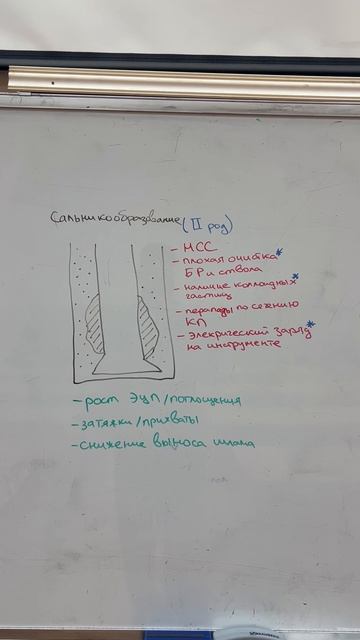 Сальникообразование (II род)
- МСС
- плохая очистка*
БР и ствола
- наличие коллоидных*
частиц
- перепады по сечению
КП
- электрический заряд*
на инструменте
- рост ЭЦП/поглощения
- затяжки/прихваты
- снижение выноса шлама